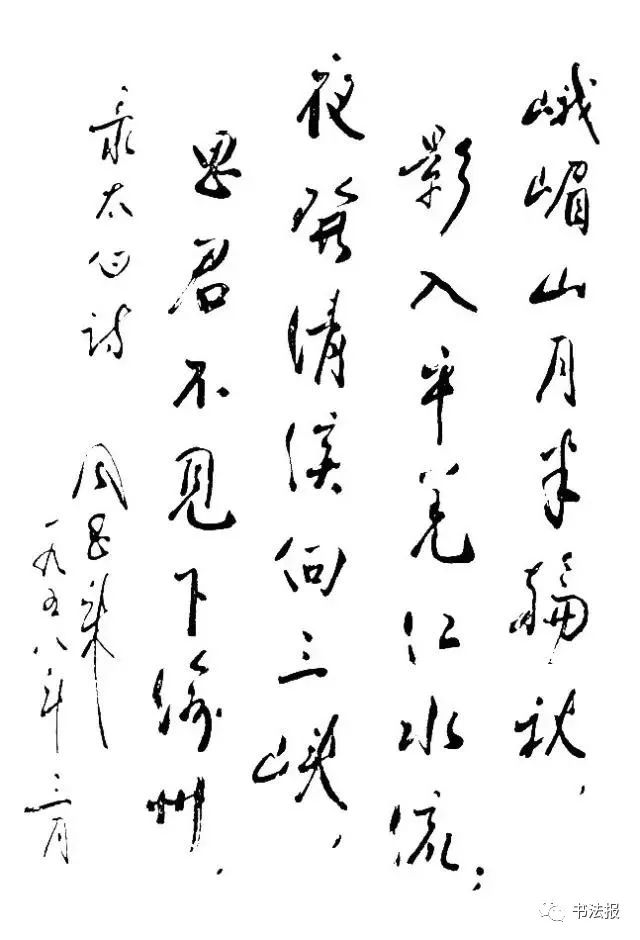 峨嵋山月半輪秋，
影入平羌江水流；
夜發清溪向三峽，
思君不見下渝州．
录太白诗
周恩来
一九五八年三月
书法报